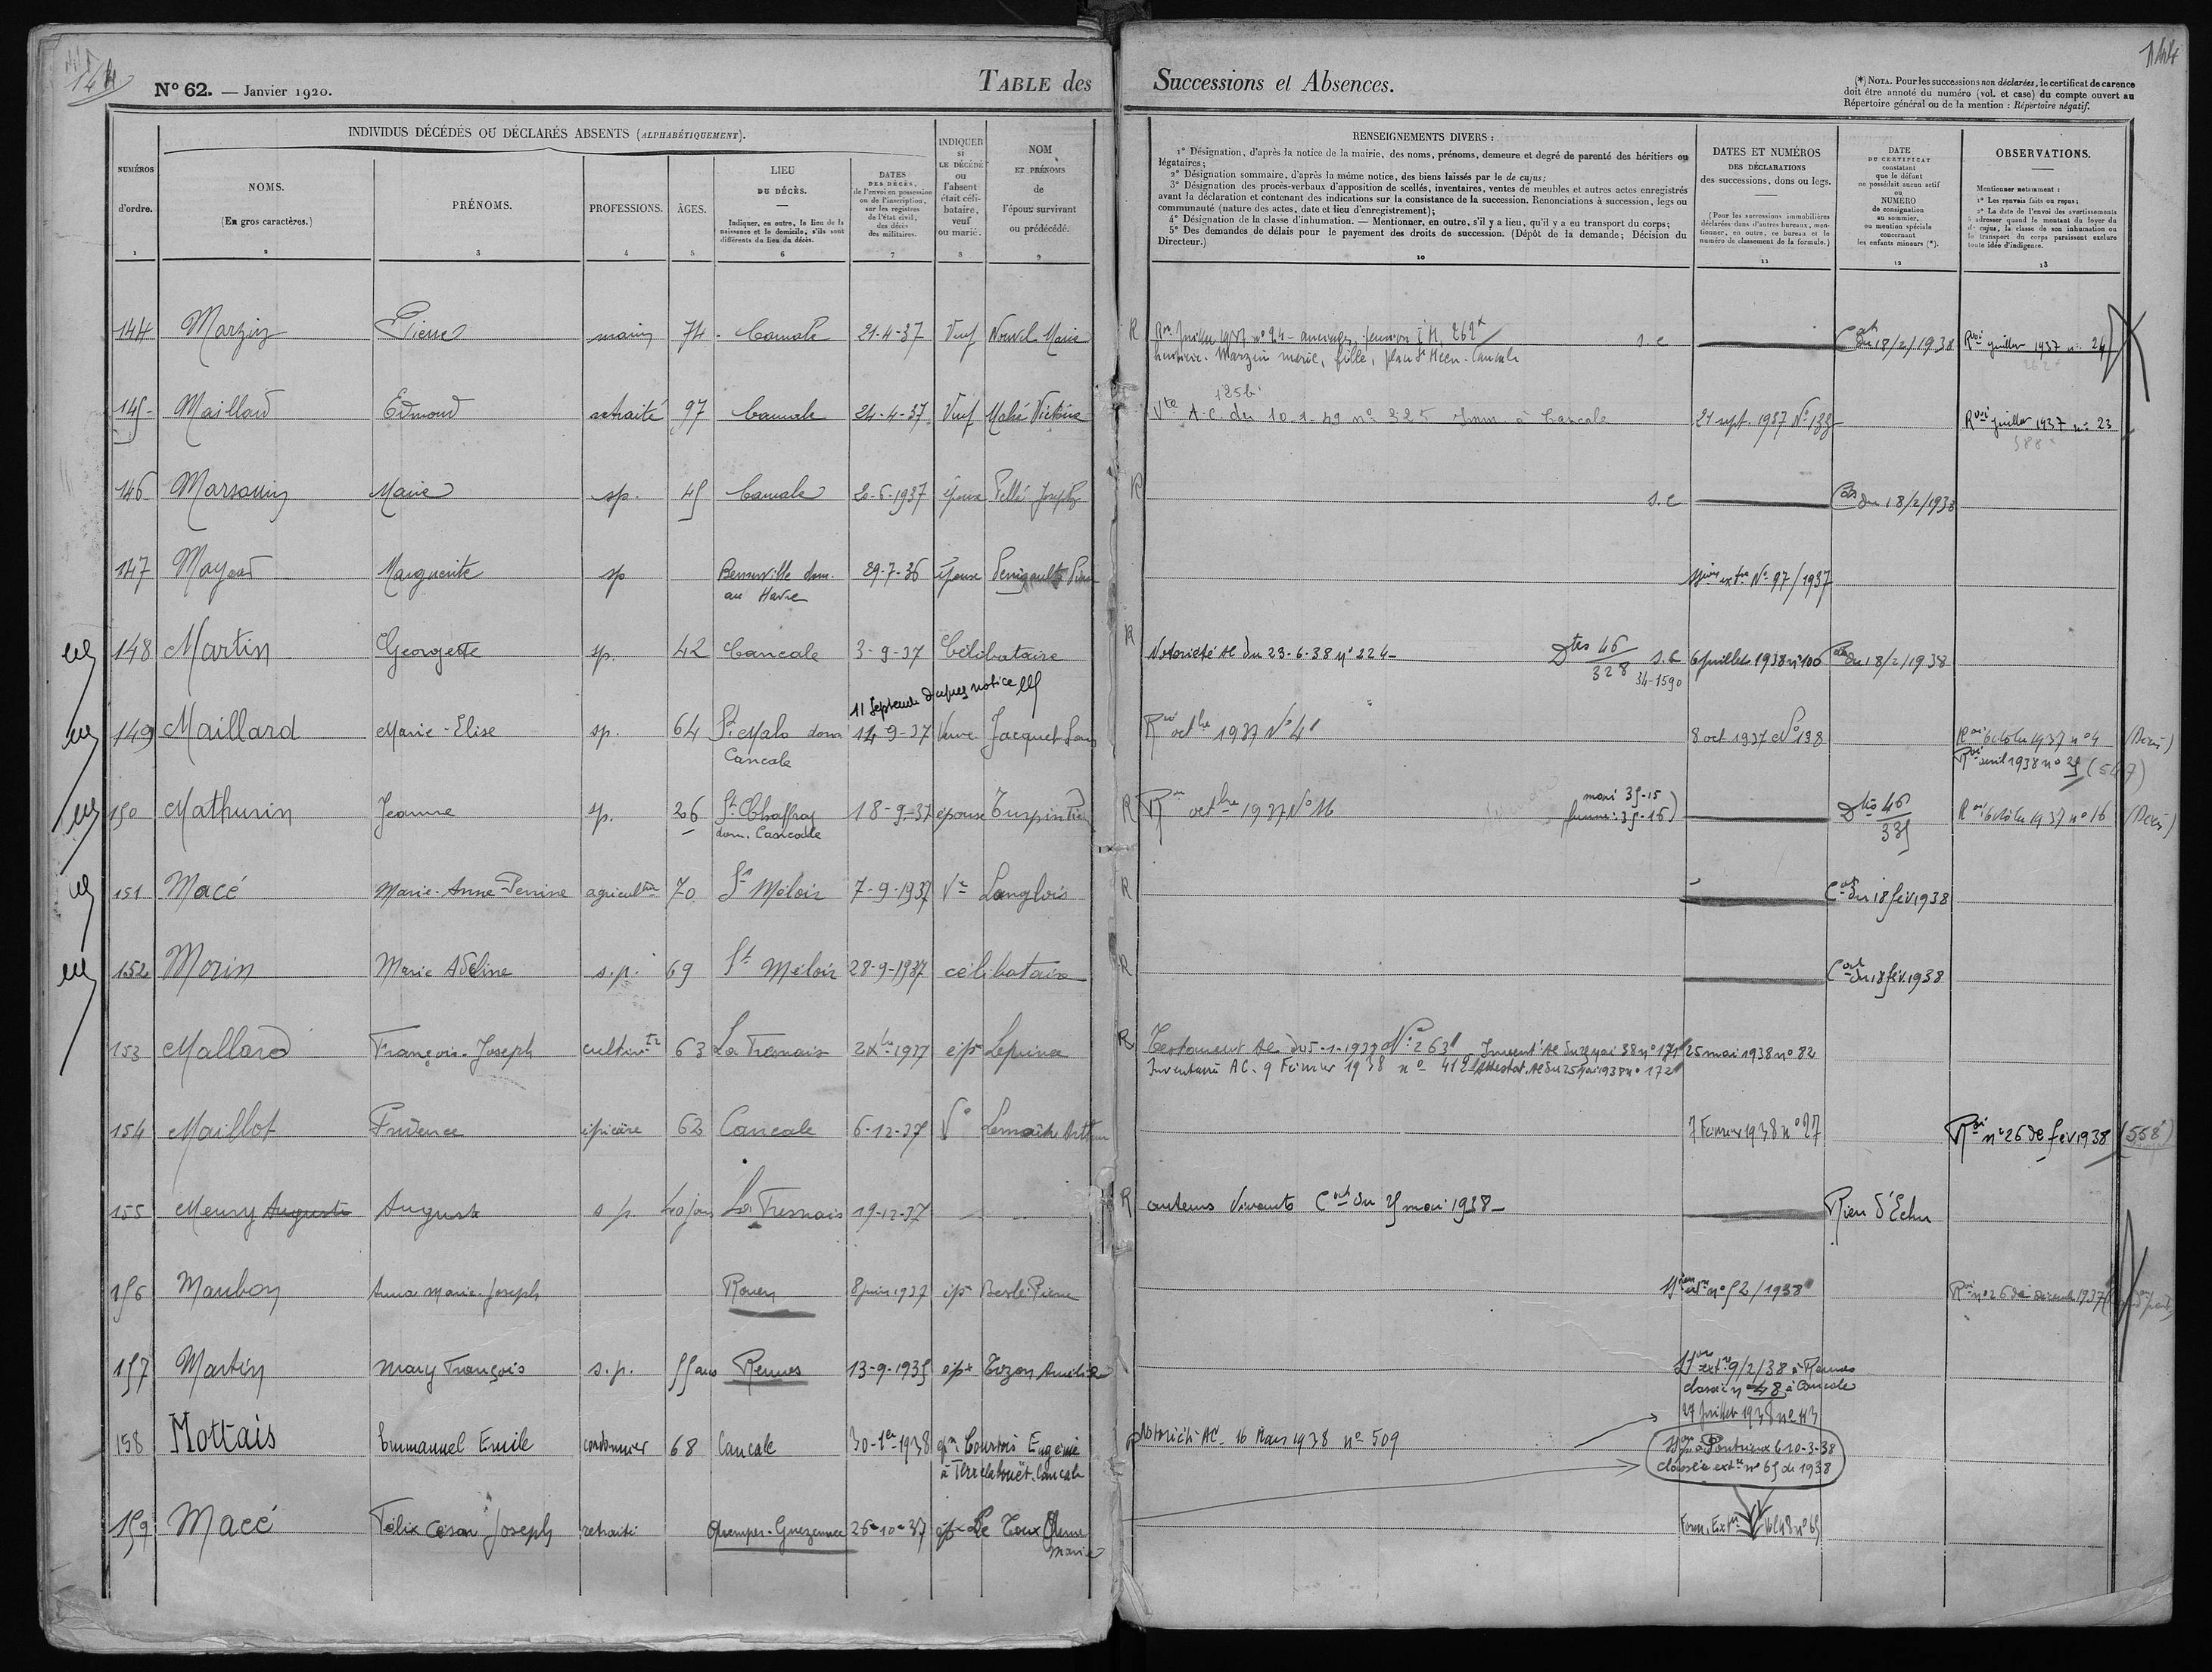 144
144
N° 62. — Janvier 1920.
TABLE des Successions et Absences.
(*) NOTA. Pour les successions non déclarées, le certificat de carence
doit être annoté du numéro (vol. et case) du compte ouvert au
Répertoire général ou de la mention : Répertoire négatif.
INDIVIDUS DÉCÉDÉS OU DÉCLARÉS ABSENTS (ALPHABÉTIQUEMENT).
NUMÉROS
d'ordre.
1
NOMS.
(En gros caractères.)
2
PRÉNOMS.
3
PROFESSIONS.
4
ÂGES.
5
LIEU
DU DÉCÈS.
Indiquer, en outre, le lieu de la
naissance et le domicile, s'ils sont
différents du lieu du décès.
6
DATES
DES DÉCÈS,
de l'envoi en possession
ou de l'inscription,
sur les registres
de l'état civil,
des décès
des militaires.
7
INDIQUER
SI
LE DÉCÉDÉ
ou
l'absent
était céli-
bataire,
veuf
ou marié.
8
NOM
ET PRÉNOMS
de
l'époux survivant
ou prédécédé.
9
RENSEIGNEMENTS DIVERS :
1° Désignation, d'après la notice de la mairie, des noms, prénoms, demeure et degré de parenté des héritiers ou
légataires;
2° Désignation sommaire, d'après la même notice, des biens laissés par le de cujus;
3° Désignation des procès-verbaux d'apposition de scellés, inventaires, ventes de meubles et autres actes enregistrés
avant la déclaration et contenant des indications sur la consistance de la succession. Renonciations à succession, legs ou
communauté (nature des actes, date et lieu d'enregistrement);
4° Désignation de la classe d'inhumation. — Mentionner, en outre, s'il y a lieu, qu'il y a eu transport du corps;
5° Des demandes de délais pour le payement des droits de succession. (Dépôt de la demande; Décision du
Directeur.)
10
DATES ET NUMÉROS
DES DÉCLARATIONS
des successions, dons ou legs.
(Pour les successions immobilières
déclarées dans d'autres bureaux, men-
tionner, en outre, ce bureau et le
numéro de classement de la formule.)
11
DATE
DU CERTIFICAT
constatant
que le défunt
ne possédait aucun actif
ou
NUMÉRO
de consignation
au sommier,
ou mention spéciale
concernant
les enfants mineurs (*).
12
OBSERVATIONS.
Mentionner notamment :
1° Les renvois faits ou reçus;
2° La date de l'envoi des avertissements
à adresser quand le montant du loyer du
de cujus, la classe de son inhumation ou
le transport du corps paraissent exclure
toute idée d'indigence.
13
144 Marzin Pierre marin 74 Cancale 21-4-37 Veuf Nouvel Marie R Roi Juillet 1937 n° 24 s.c Cat du 18/2/1938 Roi juillet 1937 n° 24
Marzin marie, fille, Cancale 262
125b
145 Maillard Edmond retraité 97 Cancale 24-4-37 Veuf Mahé Victoire Vte A.C. du 10-1-42 n° 325 Imm. à Cancale 21 sept. 1937 N° 133 Roi juillet 1937 n° 23
588
146 Marsouin Marie sp. 45 Cancale 20-6-1937 épouse Pellé Joseph R s.c Cat du 18/2/1938
147 Mayeur Marguerite sp Benerville dom. 29-7-36 épouse sion extre N° 97/1937
au Havre
148 Martin Georgette sp. 42 Cancale 3-9-37 Célibataire R Notoriété AC du 23-6-38 n° 224 Dtes 46/328 s.c 34-1590 6 juillet 1938 n° 106 Cat du 18/2/1938
11 Septembre d'après notice
149 Maillard Marie-Elise sp. 64 St Malo dom 14-9-37 Veuve Jacquet Louis Roi octbre 1937 N° 4 8 oct 1937 N° 138 Roi octobre 1937 n° 4 (Décès)
Cancale Roi avril 1938 n° 25 (547)
150 Mathurin Jeanne sp. 26 St Thaffray 18-9-37 épouse Turpin R Roi octbre 1937 N° 16 mari 35-15 Dtes 46/335 Roi octobre 1937 n° 16 (Décès)
dom. Cancale femme: 35-16)
151 Macé Marie-Anne-Perrine agricultrice 70 St Méloir 7-9-1937 Ve Langlois R Cat du 18 fév 1938
152 Morin Marie Adeline s.p. 69 St Méloir 28-9-1937 célibataire R Cat du 18 fév. 1938
153 Mallard François-Joseph cultivr 63 La Fresnais 1937 épx Leprince R Testament AC du 5-1-1938 N° 263 Invent. AC du mai 38 n° 171 25 mai 1938 n° 82
Inventaire AC. 9 Février 1938 n° 412 Attestat. AC du 25 Mai 1938 n° 172
154 Maillot Prudence épicière 62 Cancale 6-12-37 Ve Lemaître Arthur 7 Février 1938 n° 27 Roi n° 26 de fév 1938 (558)
155 Meury Auguste Auguste s p. jours La Fresnais 19-12-37 R auteurs vivants Cat du 25 mai 1938 Rien d'Echu
156 Maubon Anna Marie-Joseph Rouen 8 juin 1937 épx Pierre extre n° 52/1938 Roi n° 26 de décembre 1937
157 Martin Mary François s.p. 55 ans Rennes 13-9-1935 épx Tizon Amélie extre 9/2/38 à Rennes
classée n° 48 à Cancale
27 Juillet 1938 n° 113
158 Mottais Emmanuel Emile cordonnier 68 Cancale 30-1er-1938 épx Courtois Eugénie Notoriété AC. 16 Mars 1938 n° 509
à Terrelabouët. Cancale
son à Pontrieux 6 10-3-38
classée extre n° 65 de 1938
159 Macé Félix César Joseph retraité Quemper-Guezennec 26-10-37 épx Le Toux
Marie
Form. Extre n° 65